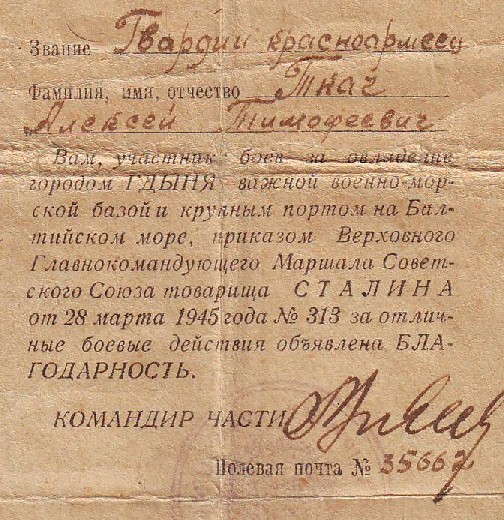 Звание Гвардии красноармеец
Фамилия, имя, отчество Ткач
Алексей Тимофеевич
Вам, участник боев за овладение
городом ГДЫНЯ важной военно-мор-
ской базой и крупным портом на Бал-
тийском море, приказом Верховного
Главнокомандующего Маршала Совет-
ского Союза товарища СТАЛИНА
от 28 марта 1945 года № 313 за отлич-
ные боевые действия объявлена БЛА-
ГОДАРНОСТЬ.
КОМАНДИР ЧАСТИ
Полевая почта № 35667